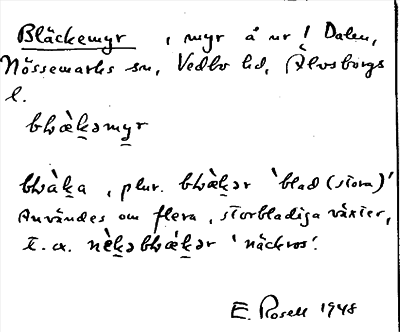 Bläckemyr , myr å nr 1 Dalen,
Nössemarks sn, Vedbo hd, Älvsborgs
l.
bḷæ̀kəmyr
bḷàka, plur. bḷækər 'blad (stora)'
Användes om flera, storbladiga växter,
t. ex. nèkəbḷækər 'näckros'.
E. Rosell 1948